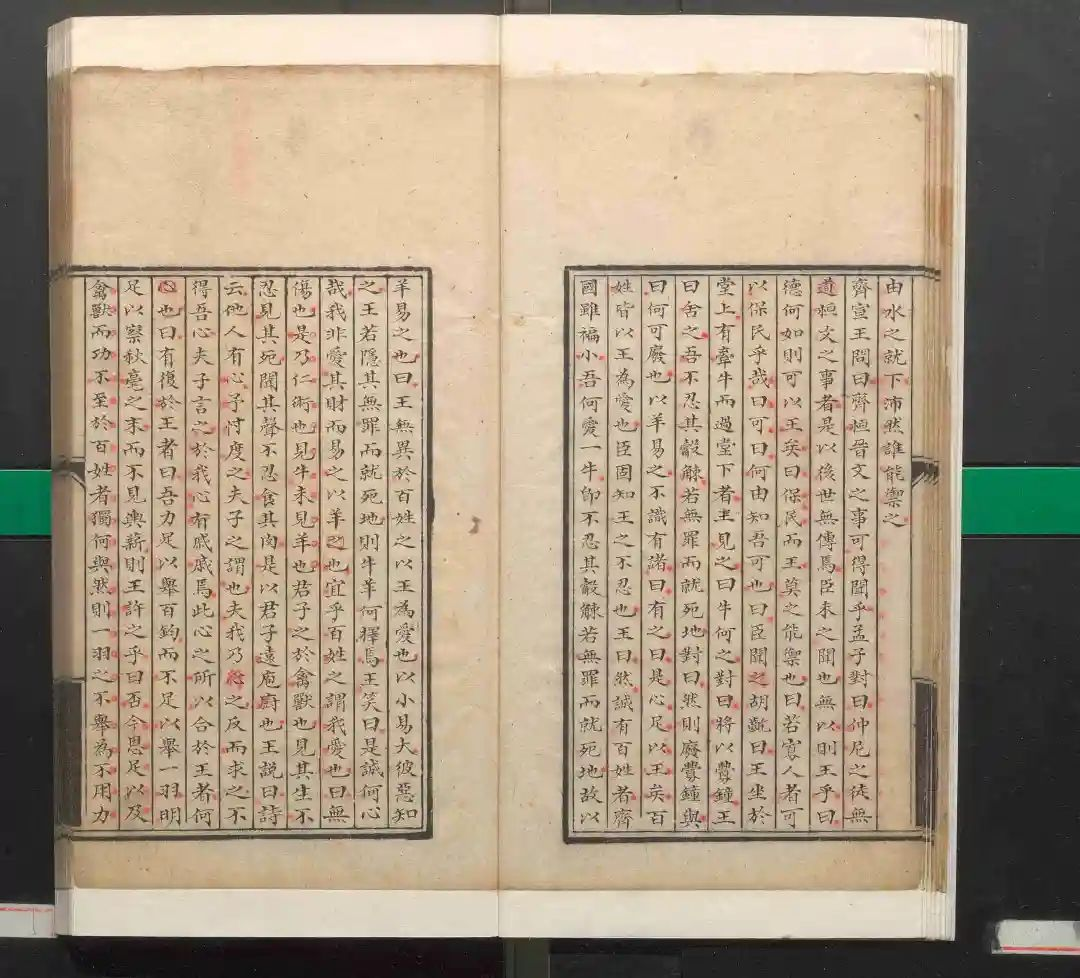 由水之就下沛然誰能禦之
齊宣王問曰齊桓晉文之事可得聞乎孟子對曰仲尼之徒無
道桓文之事者是以後世無傳焉臣未之聞也無以則王乎曰
德何如則可以王矣曰保民而王莫之能禦也曰若寡人者可
以保民乎哉曰可曰何由知吾可也曰臣聞之胡齕曰王坐於
堂上有牽牛而過堂下者王見之曰牛何之對曰將以釁鐘王
曰舍之吾不忍其觳觫若無罪而就死地對曰然則廢釁鐘與
曰何可廢也以羊易之不識有諸曰有之曰是心足以王矣百
姓皆以王為愛也臣固知王之不忍也王曰然誠有百姓者齊
國雖褊小吾何愛一牛即不忍其觳觫若無罪而就死地故以
羊易之也曰王無異於百姓之以王為愛也以小易大彼惡知
之王若隱其無罪而就死地則牛羊何擇焉王笑曰是誠何心
哉我非愛其財而易之以羊也宜乎百姓之謂我愛也曰無
傷也是乃仁術也見牛未見羊也君子之於禽獸也見其生不
忍見其死聞其聲不忍食其肉是以君子遠庖廚也王說曰詩
云他人有心予忖度之夫子之謂也夫我乃行之反而求之不
得吾心夫子言之於我心有戚戚焉此心之所以合於王者何
也曰有復於王者曰吾力足以舉百鈞而不足以舉一羽明
足以察秋毫之末而不見輿薪則王許之乎曰否今恩足以及
禽獸而功不至於百姓者獨何與然則一羽之不舉為不用力